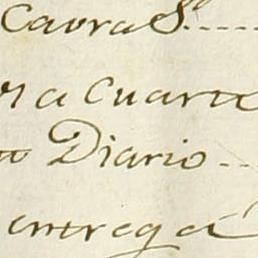 Cavra S.ⁿ....
ra Cuarta
to Diario..
entrega